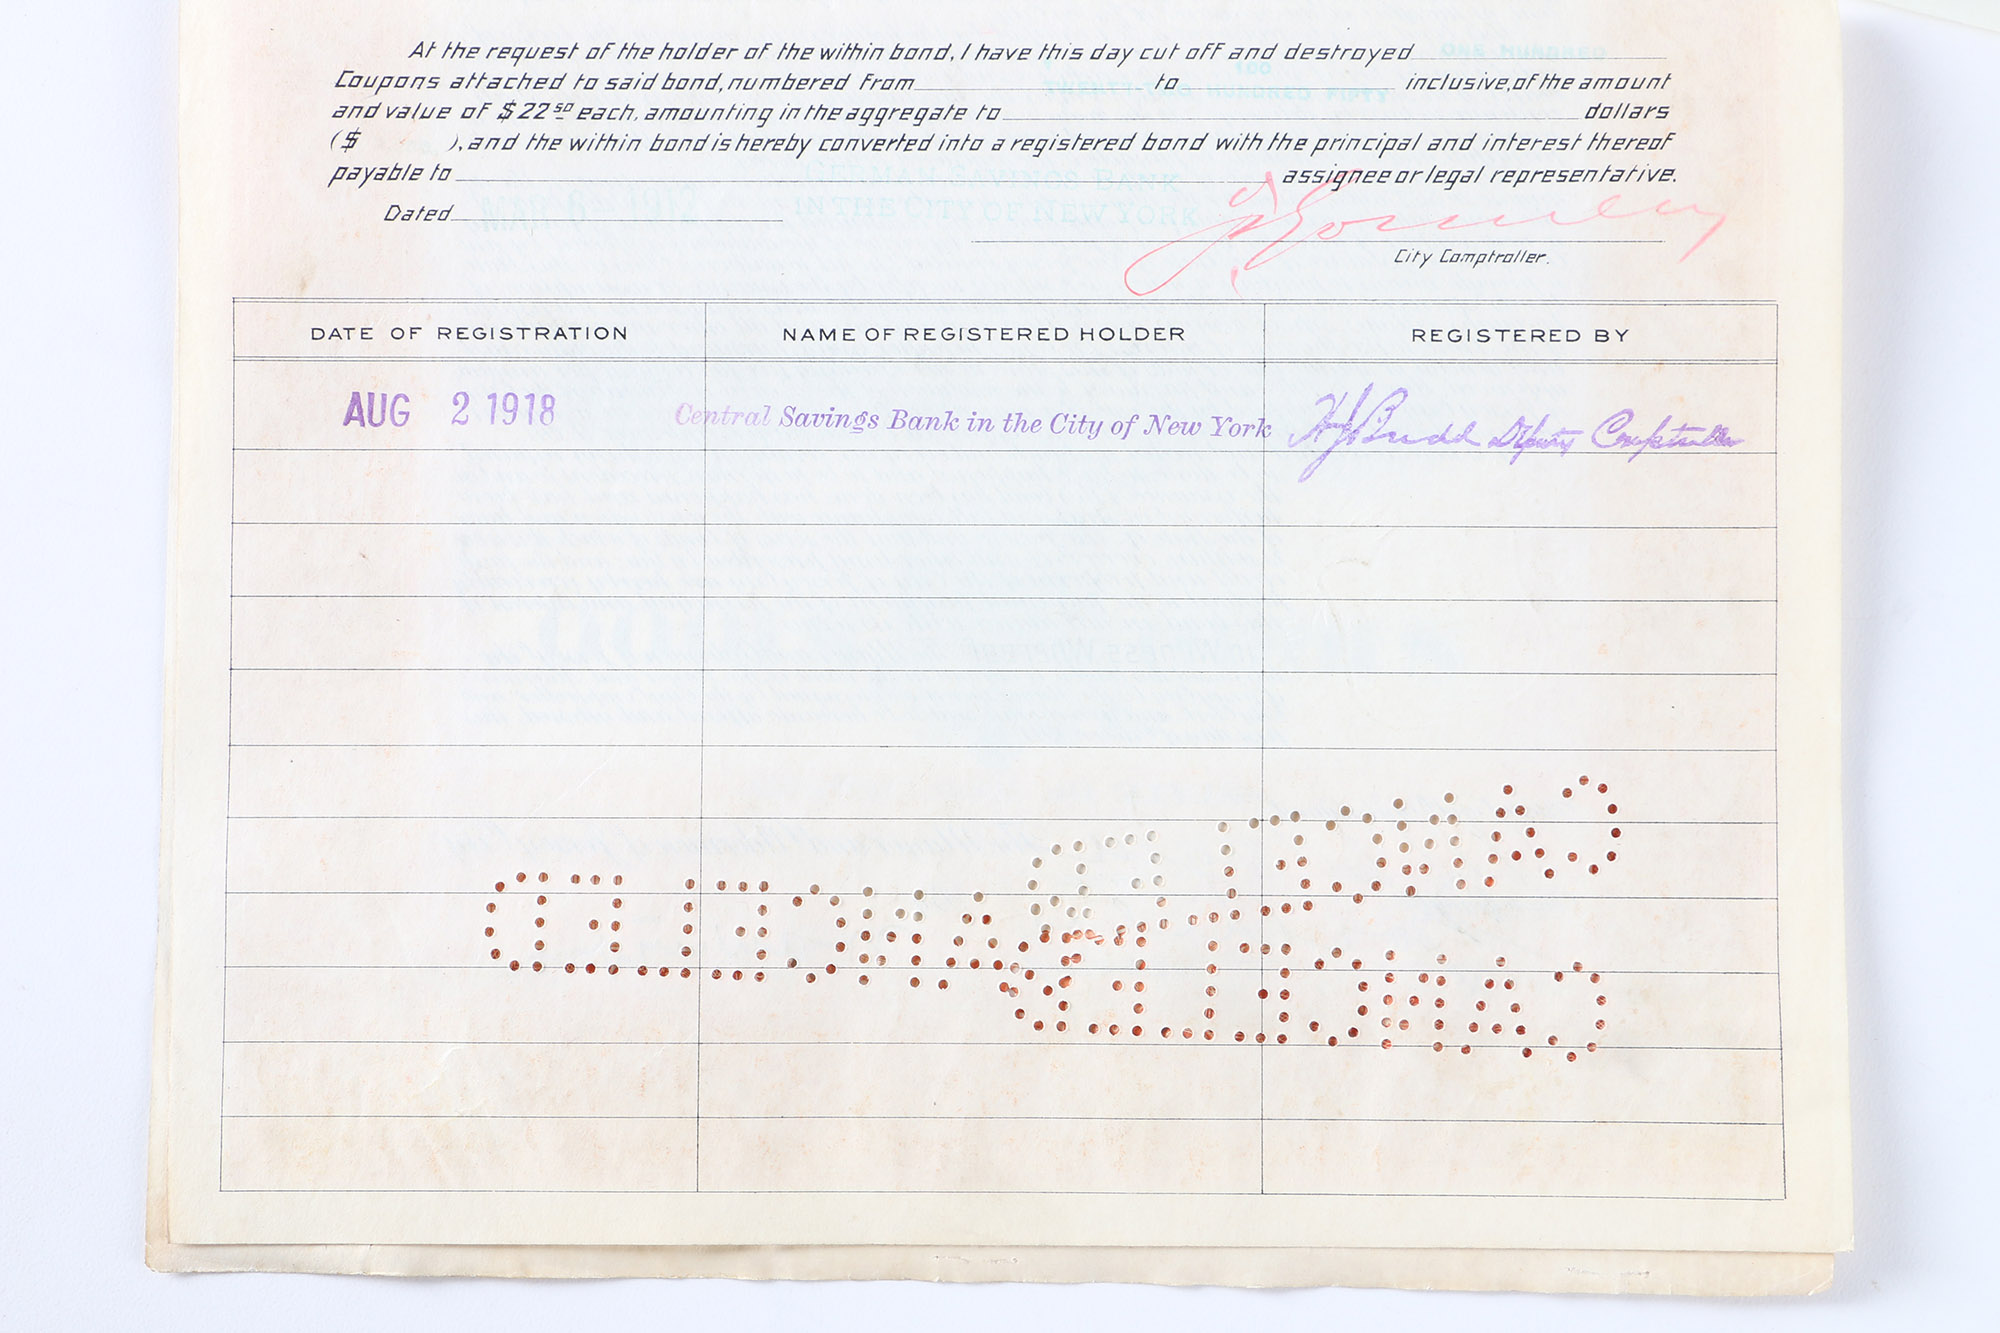 At the request of the holder of the within bond, I have this day cut off and destroyed ONE HUNDRED
100
Coupons attached to said bond, numbered from to inclusive, of the amount
TWENTY-TWO HUNDRED FIFTY
and value of $22 50 each, amounting in the aggregate to dollars
($ ), and the within bond is hereby converted into a registered bond with the principal and interest thereof
payable to GERMAN SAVINGS BANK assignee or legal representative.
IN THE CITY OF NEW YORK
Dated
City Comptroller.
DATE OF REGISTRATION NAME OF REGISTERED HOLDER REGISTERED BY
AUG 2 1918 Central Savings Bank in the City of New York H J Budd Deputy Comptroller
CANCELED
CANCELED
CANCELED